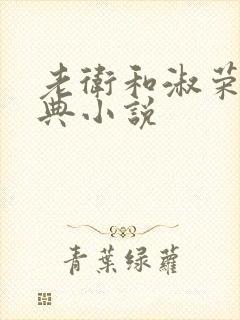 老衛和淑荣
典小説
青葉绿蘿